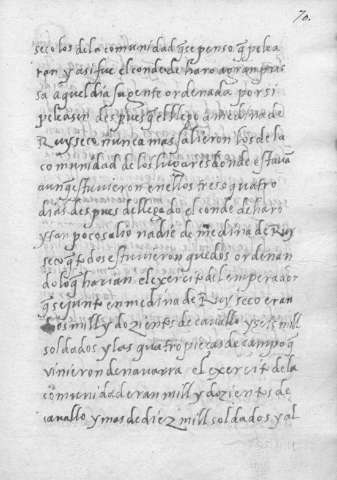 70.
seco los de la comunidad q̃ se penso q̃ pelea
ran y asi fue el conde de haro a gran pries
sa aquel dia su gente ordenada por si
peleasen despues que llego a medina de
Ruyseco nunca mas salieron los de la
comunidad de los lugares donde estava
aunq̃ estuvieron en ellos tres o quatro
dias despues de llegado el conde de haro
y tan poco salio nadie de medina de Ruy
seco q̃ todos estuvieron quedos ordenan
do lo q̃ harian el exercito del emperador
q̃ se junto en medina de Ruyseco eran
dos mill y dozientos de cavallo y seis mill
soldados y las quatro pieças de campo q̃
vinieron de navarra el exercito de la
comunidad eran mill y dozientos de
cavallo y mas de diez mill soldados y al